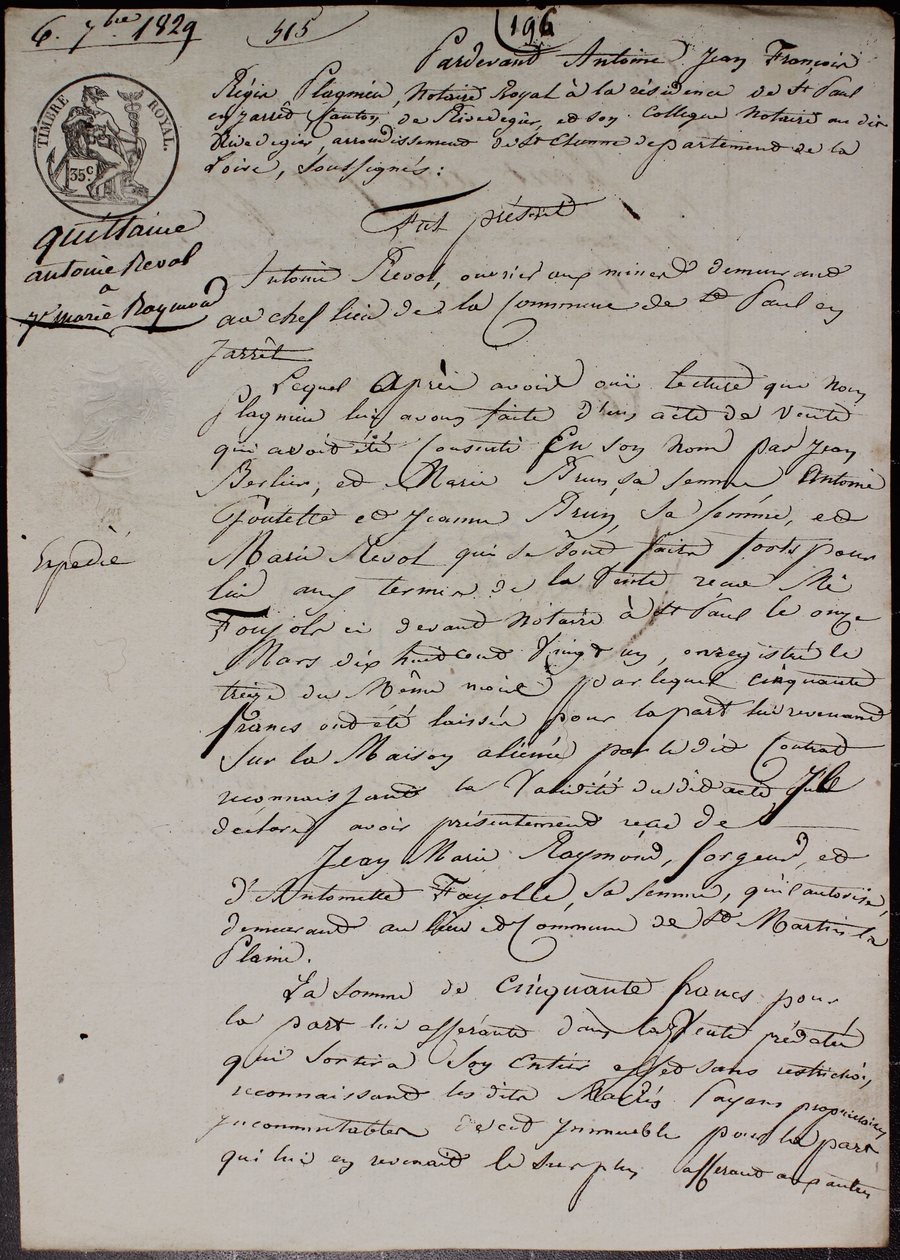 6. 7bre 1829
515
196
Pardevant Antoine Jean François
Régis Plagnieu, Notaire Royal à la résidence de St Paul
en jarrêt Canton de Rivedegier, et son Collegue Notaire au dit
Rivedegier, arrondissement de St Etienne departement de la
Loire, Soussignés:
TIMBRE ROYAL.
35c
quittance
antoine Revol
a
Jn marie Raymond
Fut présent
Antoine Revol, ouvrier aux mines demeurant
au chef lieu de la Commune de St Paul en
Jarrêt
Lequel Après avoir ouï lecture que Nous
Plagnieu lui avons faite d'un acte de Vente
qui avoit été Consenti En son nom par Jean
Berlier, et Marie Brun, sa femme Antoine
et Jeanne Brun, sa femme, et
Marie Revol qui se sont faits forts pour
lui aux termes de la Vente reçue Me
ci devant Notaire à St Paul le onze
Mars dix huit cent Vingt un, enregistré le
treize du Même mois par lequel cinquante
francs ont été laissés pour la part lui revenant
Sur la Maison aliénée par le dit Contrat
reconnaissant la Validité du dit acte
déclare avoir présentement reçu de
Jean Marie Raymond, forgeur, et
d'Antoinette Fayolle, sa femme, qu'il autorise,
demeurant au lieu et Commune de St Martin la
Plaine.
La somme de Cinquante francs pour
la part lui afférante dans la Vente prédatée
qui sortira Son entier effet sans restriction,
reconnaissant les dits Mariés propriétaires
incommutables de cet Immeuble pour la part
qui lui en revenait le Surplus afferant aux autres
Expedié